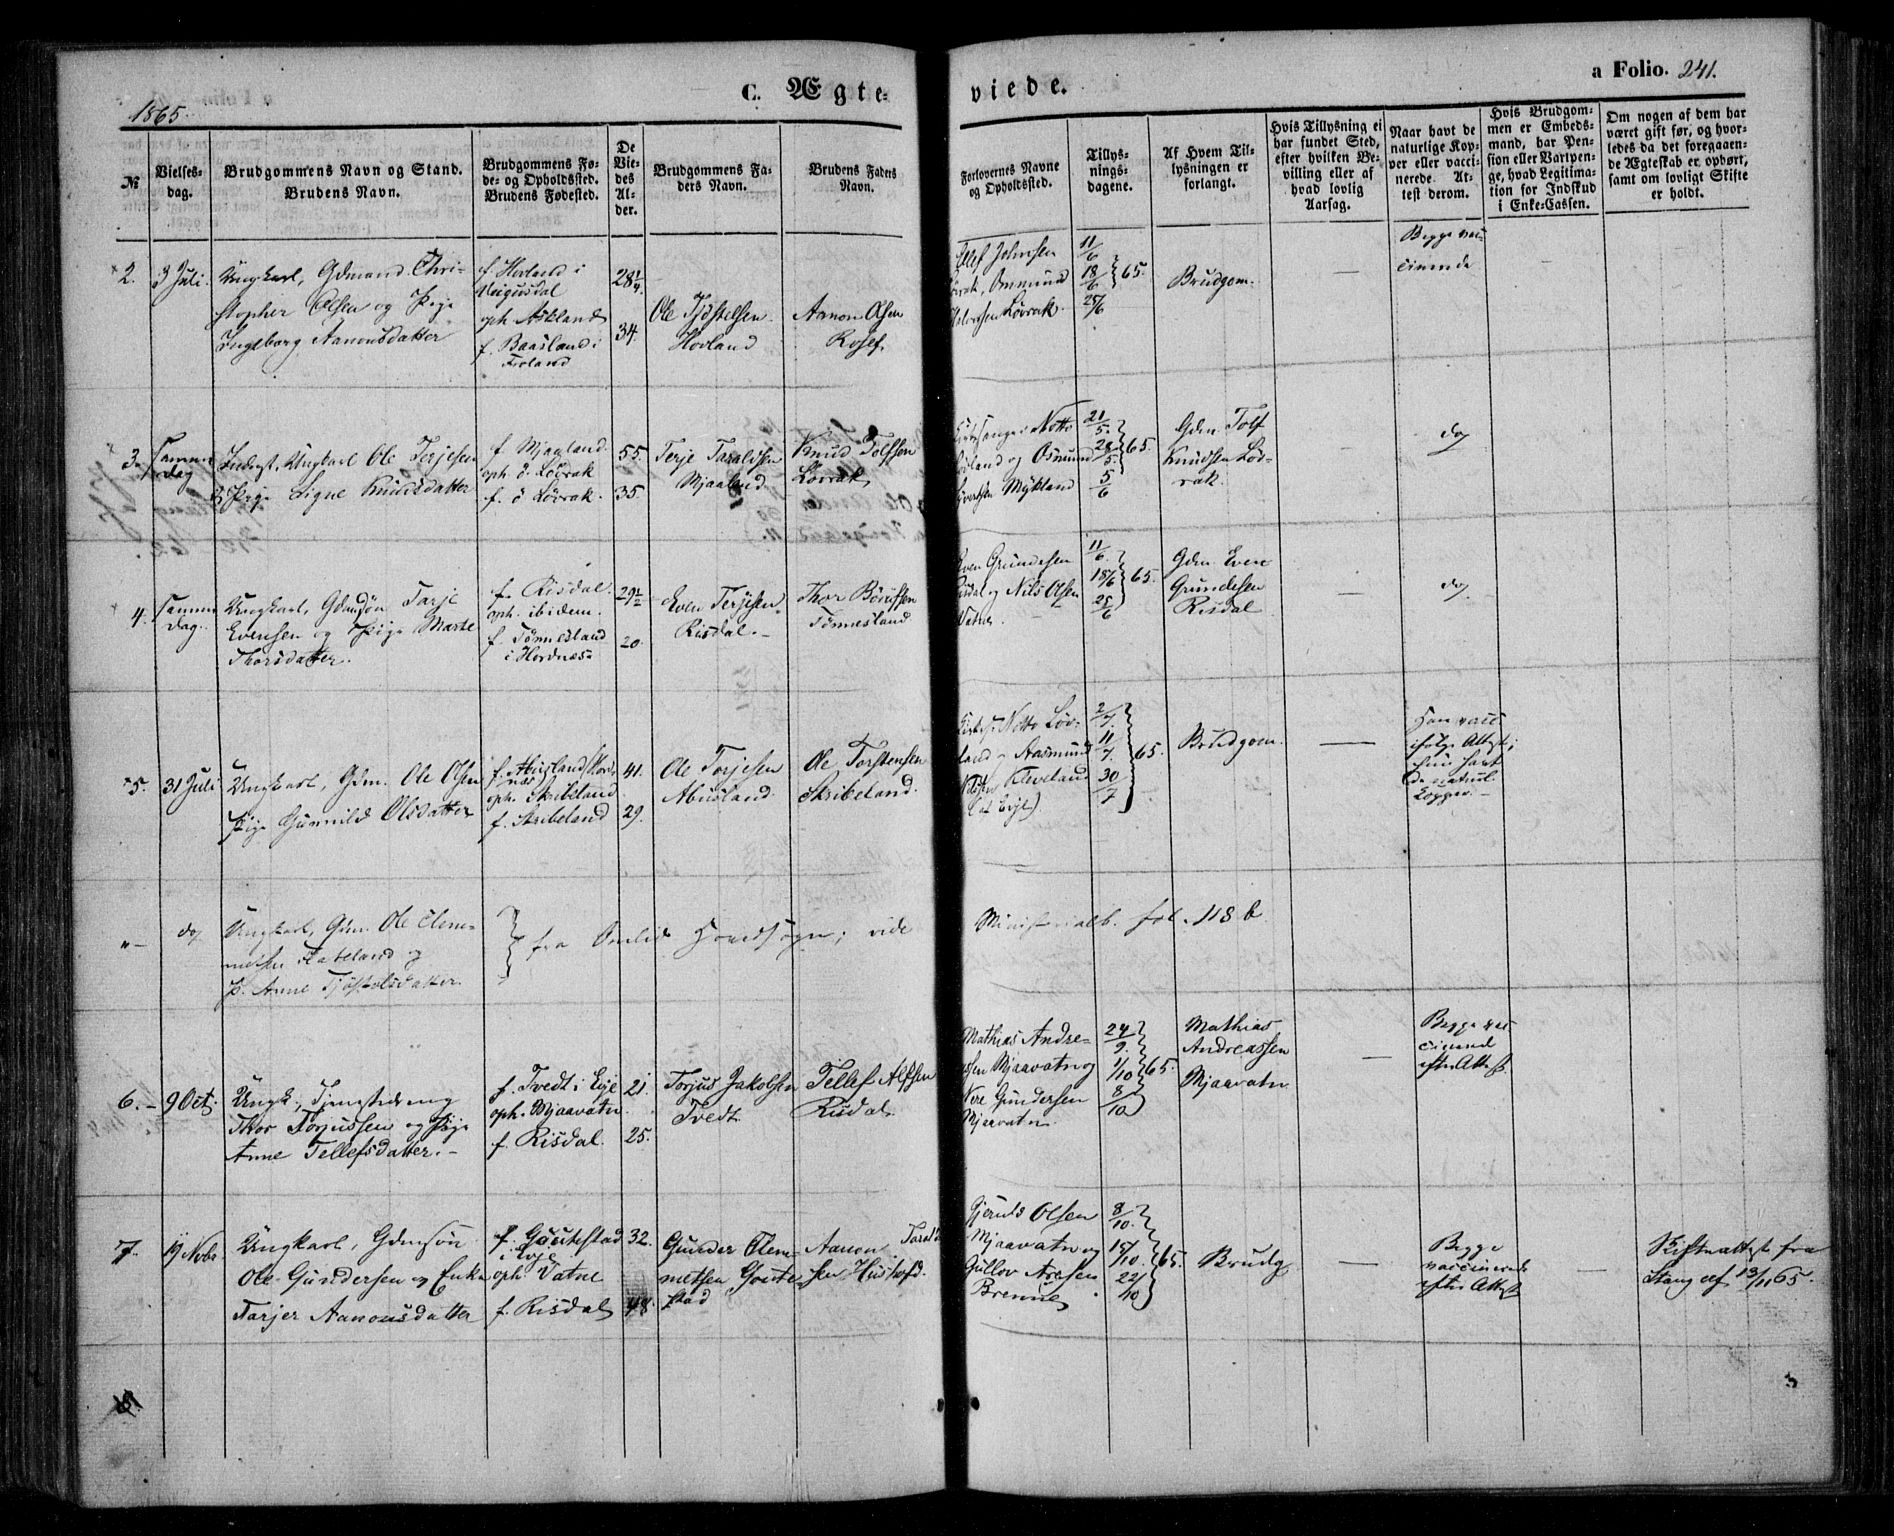 1865.
C. Ægte-
viede.
a Folio. 241.
№
Vielses-
dag.
Brudgommens Navn og Stand.
Brudens Navn.
Brudgommens Fø-
de- og Opholdssted.
Brudens Fødested.
De
Vie-
des
Al-
der.
Brudgommens Fa-
ders Navn.
Brudens Faders
Navn.
Forlovernes Navne
og Opholdssted.
Tillys-
nings-
dagene.
Af Hvem Til-
lysningen er
forlangt.
Hvis Tillysning ei
har fundet Sted,
efter hvilken Be-
villing eller af
hvad lovlig
Aarsag.
Naar havt de
naturlige Kop-
per eller vacci-
nerede. At-
test derom.
Hvis Brudgom-
men er Embeds-
mand, har Pen-
sion eller Vartpen-
ge, hvad Legitima-
tion for Indskud
i Enke-Cassen.
Om nogen af dem har
været gift før, og hvor-
ledes da det foregaaen-
de Ægteskab er ophørt,
samt om lovligt Skifte
er holdt.
2.
3 Juli.
Ungkarl, Gdmand Chri-
stopher Olsen og Pige
Ingeborg Aanonsdatter
f. Hovland i
oph. Askland
f. Baasland i
Froland
28¼
34.
Ole Tjöstelsen
Hovland
Aanon Olsen
Rosef.
Ellef Johnsen
Løvrak, Ommund
Halvorsen Løvrak.
11/6
18/6
25/6
65.
Brudgom.
—
Begge vac-
cinerede
3.
Samme
dag
Inderst, Ungkarl Ole Terjesen
& Pige Signe Knudsdatter
f. Mjaaland.
oph. ö. Løvrak
f. ö Løvrak.
55.
35.
Terje Taraldsen
Mjaaland
Knud Tolfsen
Løvrak
Kirkesanger Notto
Løvland og Osmund
Sjvertsen Mykland
21/5
28/5
5/6
65.
Gdm Tolf
Knudsen Løv-
rak.
—
do
4.
Samme
dag.
Ungkarl, Gdmsøn Tarje
Evensen og Pige Marte
Thorsdatter.
f. Risdal.
oph. ibidem.
f. Tønnesland
i Hordnæs
29½
20.
Even Terjesen
Risdal.
Thor Börufsen
Tønnesland
Even Grundesen
Risdal og Nils Olsen
Vatne.
11/6
18/6
25/6
65.
Gdm Even
Grundesen
Risdal
—
do.
5.
31 Juli
Ungkarl, Gdm. Ole Olsen
Pige Gunnild Olsdatter
f. Abusland Hord-
næs
oph. Skribeland
f. Skribeland
41.
29.
Ole Torjesen
Abusland
Ole Torstensen
Skribeland.
Kirkes. Notto Løv-
land & Aasmund
Nilsen Kleveland
(at Evje)
2/7
11/7
30/7
65.
Brudgom.
—
Han vacc
ifølge Attest;
hun havt
de naturl.
Kopper.
"-
do,
Ungkarl, Gdm. Ole Clem-
metsen Flateland og
P. Anne Tjøstolsdatter
fra Omlid Hovedsogn; vide
Ministerialb. fol. 118 b
6.
9 Oct.
Ungk., Tjenestedreng
Thor Torjussen og Pige
Anne Tellefsdatter.
f. Tvedt i Evje
oph. Mjaavatn.
f. Risdal.
21.
25.
Torjus Jakobsen
Tvedt
Tellef Alfsen
Risdal
Mathias Andre-
assen Mjaavatn og
Nere Gundersen
Mjaavatn
24/9
1/10
8/10
65.
Mathias
Andreassen
Mjaavatn
—
Begge vac
cinered
efter Attest
7.
19 Novbr
Ungkarl, Gdmsøn
Ole Gundersen og Enke
Tarjer Aanonsdatter
f. Goutestad
i Evje
oph. Vatne
f. Risdal
32.
48.
Gunder Clem-
metsen Goute-
stad
Aanon Tarald-
sen Hustoft.
Gjeruls Olsen
Mjaavatn og
Gullov Aresen
Brenne
8/10
15/10
22/10
65.
Brudg
Begge
vaccinerede
efter Attest
—
Skifteattest fra
Stang ef 13/11 65.